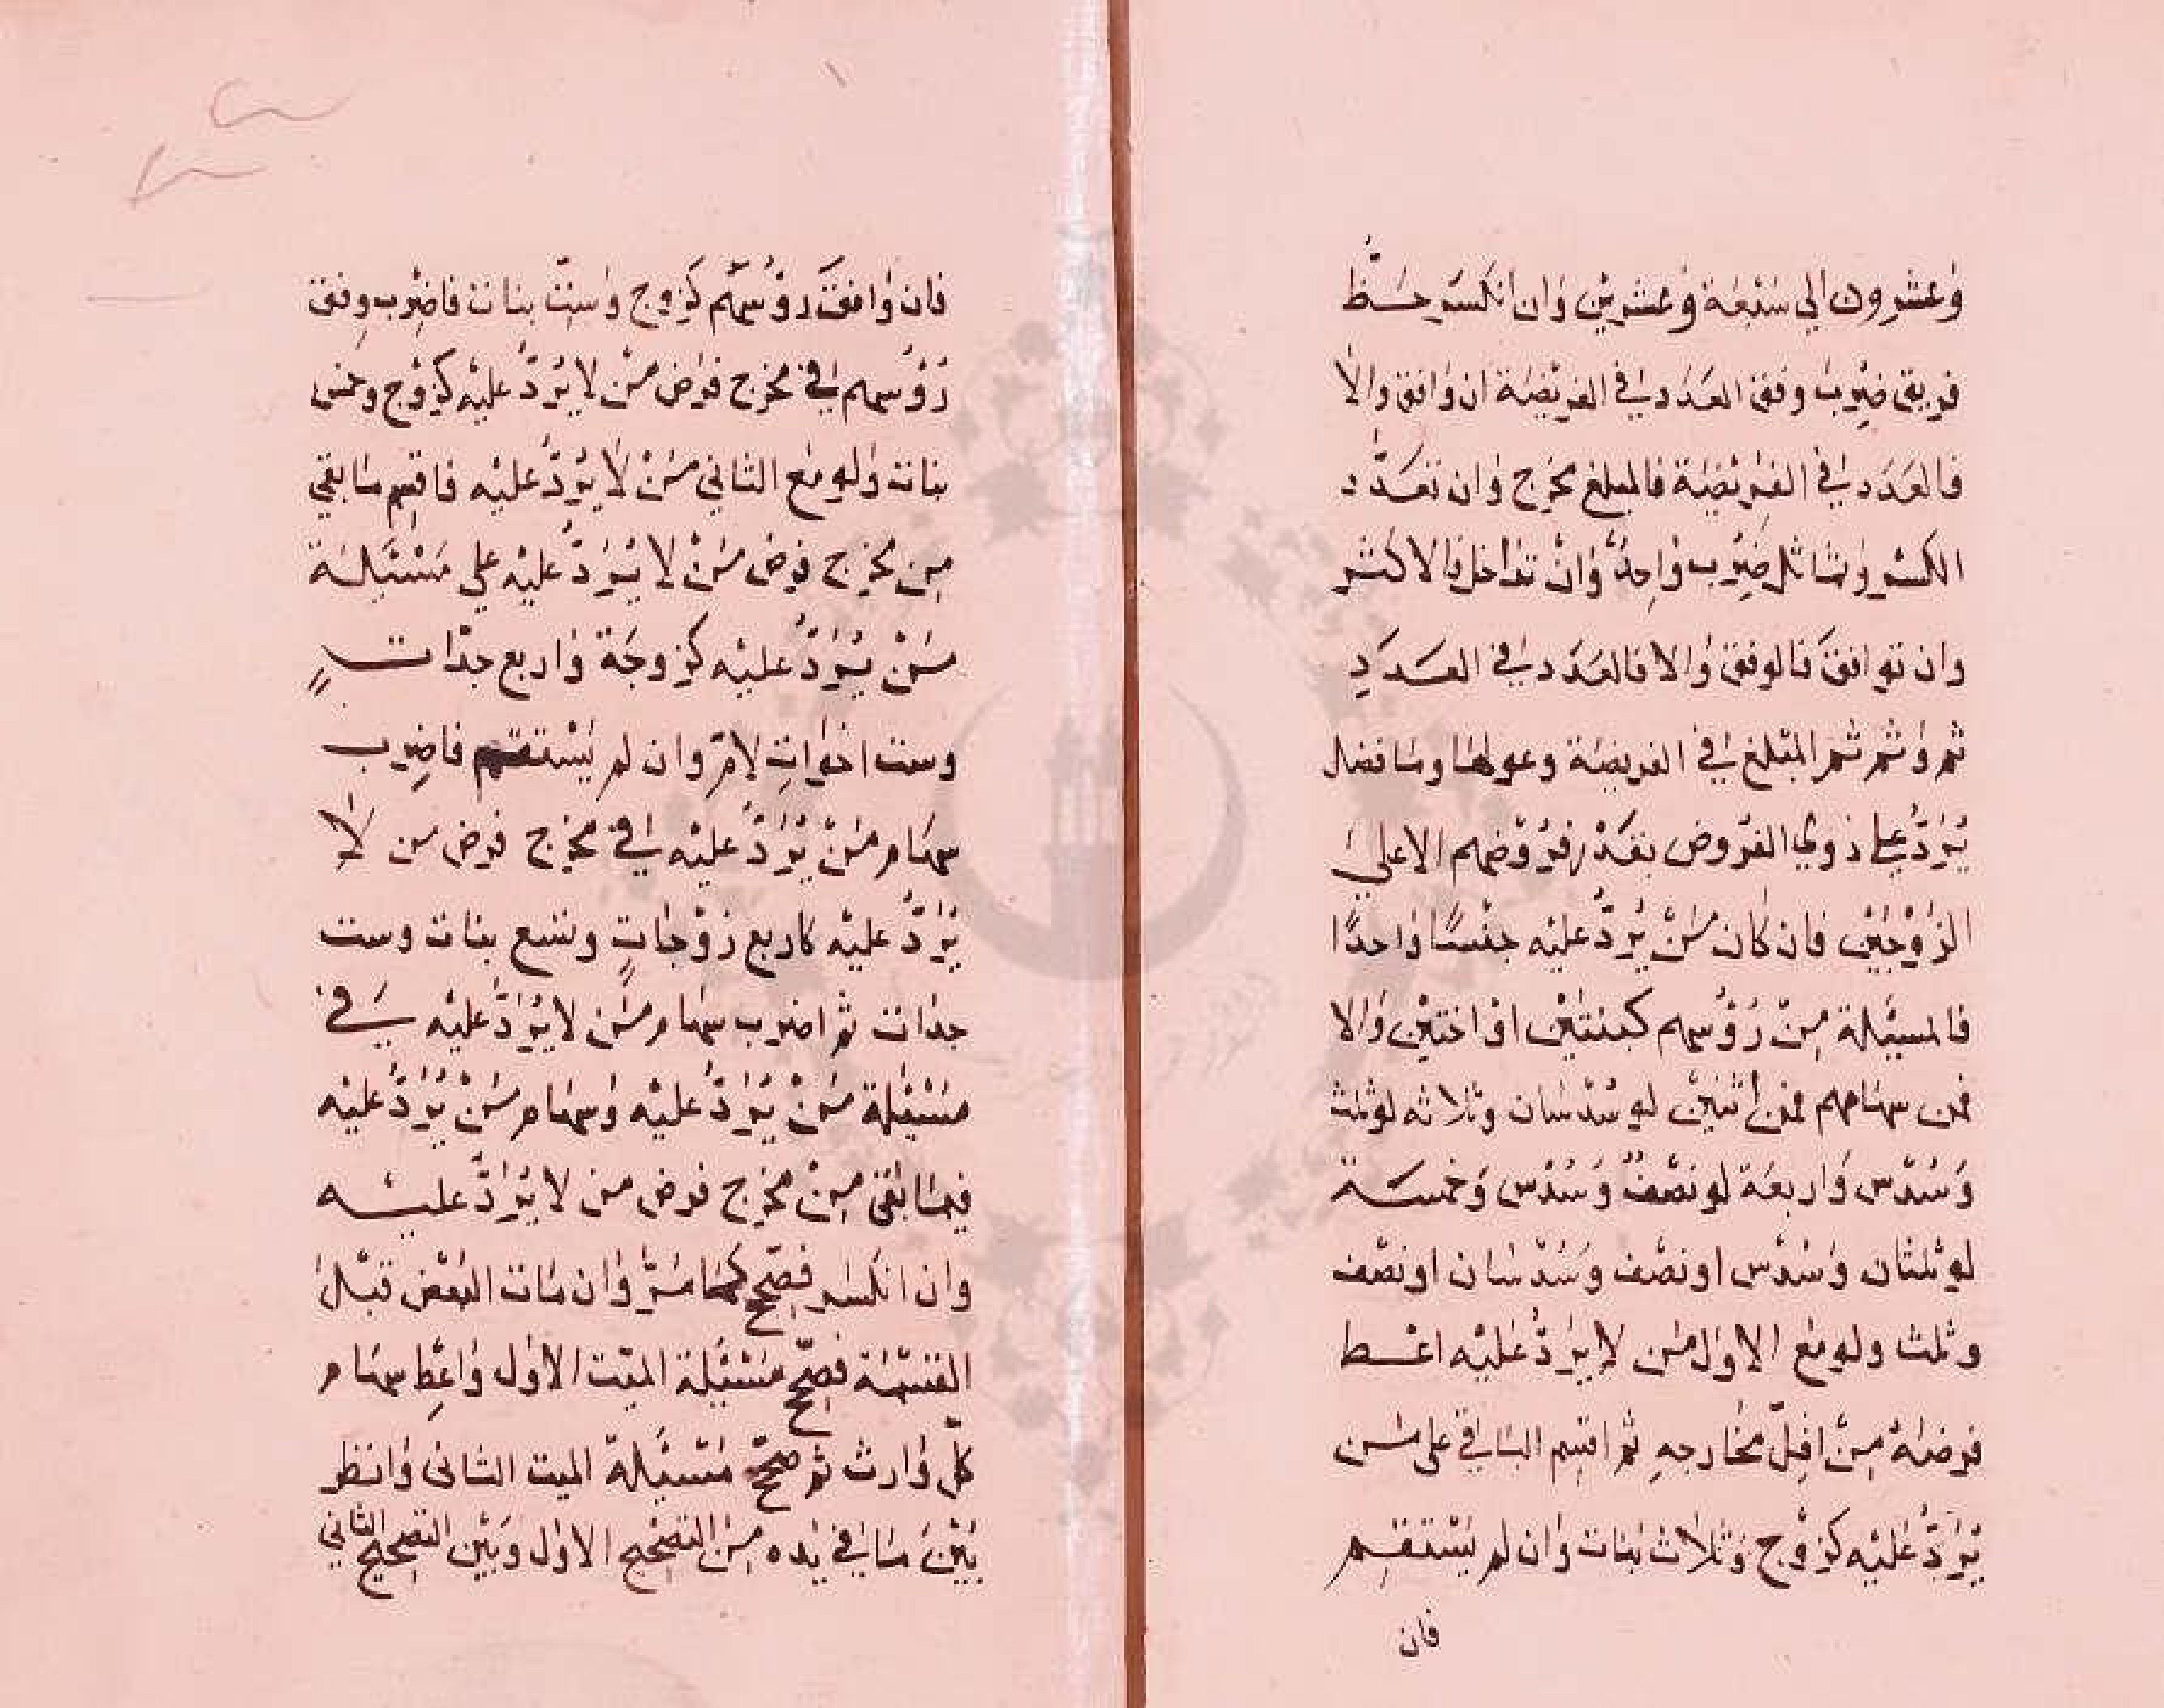 وعشرون الي سبعة وعشرين وان انكسر حظ
فريق ضرب وفق العدد في الفريضة ان وافق والا
فالعدد في الفريضة فالمبلغ مخرج وان تعدد
الكسر وتماثل ضرب واحد وان تداخل فالاكثر
وان توافق فالوفق والا فالعدد في العدد
ثم وثم ثم المبلغ في الفريضة وعولها وما فضل
يرد علي ذوي الفروض بقدر فروضهم الا علي
الزوجين فان كان من يرد عليه جنسا واحدا
فالمسئلة من رؤسهم كبنتين او اختين والا
فمن سهامهم فمن اثنين لو سدسان وثلاثه لو ثلث
وسدس واربعة لو نصف وسدس وخمسة
لو ثلثان وسدس او نصف وسدسان او نصف
وثلث ولو مع الاول من لا يرد عليه اعط
فرضه من اقل مخارجه ثم اقسم الباقي على من
يرد عليه كزوج وثلاث بنات وان لم يستقم
فان
فان وافق رؤسهم كزوج وست بنات فاضرب وفق
رؤسهم في مخرج فرض من لا يرد عليه كزوج وخمس
بنات ولو مع الثاني من لا يرد عليه فاقسم ما بقي
من مخرج فرض من لا يرد عليه علي مسئلة
من يرد عليه كزوجة واربع جدات
وست اخوات لام وان لم يستقم فاضرب
سهام من يرد عليه في مخرج فرض من لا
يرد عليه كاربع زوجات وتسع بنات وست
جدات ثم اضرب سهام من لا يرد عليه في
مسئلة من يرد عليه وسهام من يرد عليه
فيما بقى من مخرج فرض من لا يرد عليه
وان انكسر فصحح كما مر وان مات البعض قبل
القسمة فصحح مسئلة الميت الاول واعط سهام
كل وارث ثم صحح مسئلة الميت الثانى وانظر
بين ما في يده من التصحيح الاول وبين التصحيح الثاني